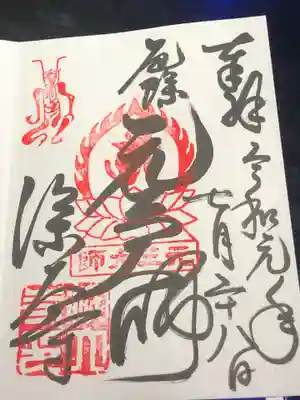 奉拝 令和元年
七月二十八日
厄除
元三大師
元三大師
深大寺